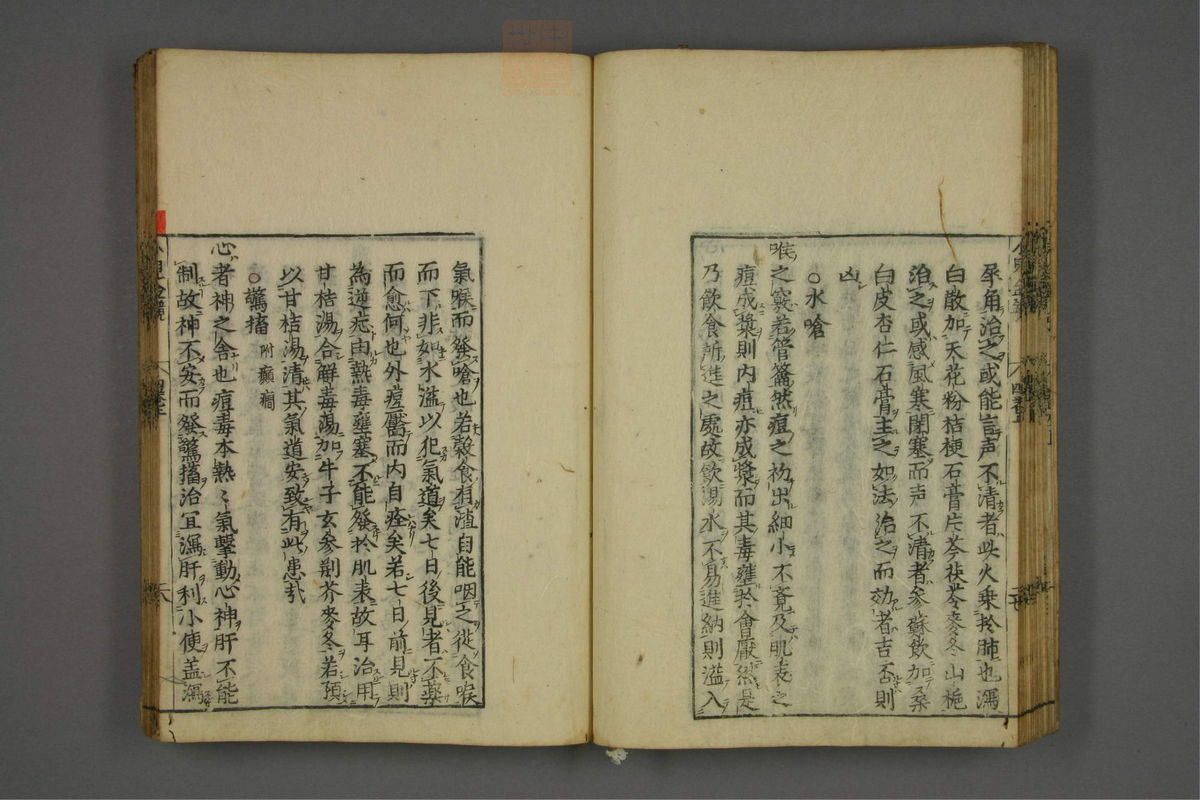 犀角治之或能言声不清者此火乗於肺也瀉
白散加天花粉桔梗石膏片芩茯苓麥冬山梔
治之或感風寒閉塞而声不清者參蘇飲加桑
白皮杏仁石膏主之如法治之而効者吉否則
凶
○水嗆
喉之竅若管籥然痘之初出細小不覺及肌表之
痘成漿則内痘亦成漿而其毒壅於會厭緣是
乃飲食所進之處故飲湯水不易進納則溢入
氣喉而發嗆也若穀食有渣自能咽之從食喉
而下非如水溢以犯氣道矣七日後見者不藥
而愈何也外痘靨而内自痊矣若七日前見則
為逆症由熱毒壅塞不能發於肌表故耳治用
甘桔湯合解毒湯加牛子玄參荆芥麥冬若預
以甘桔湯清其氣道安致有此患哉
○驚搐 附癲癇
心者神之舎也痘毒本熱〻氣擊動心神肝不能
制故神不安而發驚搐治冝瀉肝利小便盖瀉